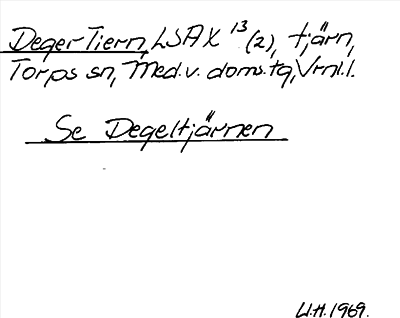 Deger Tiern, LSA X 13 (2), tjärn,
Torps sn, Med. v. doms. tg, Vrnl. l.
Se Degeltjärnen
U.H. 1969.